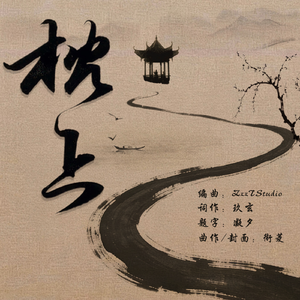 枕上
编曲：ZxxTStudio
词作：玖玄
题字：凝夕
曲作/封面：衡菱